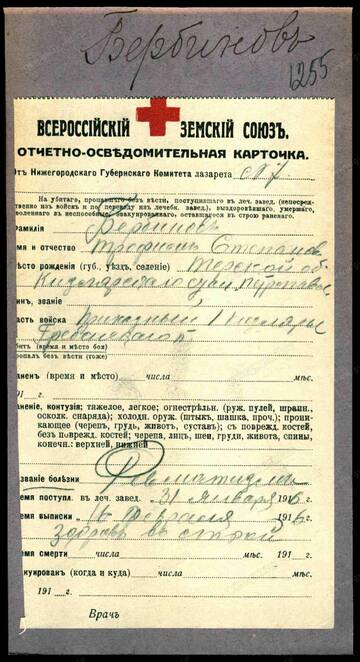 Бербиновъ
1255
ВСЕРОССІЙСКІЙ ЗЕМСКІЙ СОЮЗЪ.
ОТЧЕТНО-ОСВѢДОМИТЕЛЬНАЯ КАРТОЧКА.
Отъ Нижегородскаго Губернскаго Комитета лазарета № 7
На убитаго, пропавшаго безъ вѣсти, поступившаго въ леч. завед. (непосред-
ственно изъ войскъ и по переводу изъ лечебн. завед.), выздоровѣвшаго, умершаго,
уволеннаго въ неспособные, эвакуированнаго, оставшагося въ строю раненаго.
Фамилія Бербиновъ
Имя и отчество Трофимъ Степанов
Мѣсто рожденія (губ., уѣзд., селеніе) Терской об
Кизлярскаго
Чинъ, званіе
Часть войска 1 Кизляро
Гребенского п
Убитъ (время и мѣсто боя)
Пропалъ безъ вѣсти (тоже)
Раненъ (время и мѣсто) числа мѣс.
191 г.
Раненіе, контузія: тяжелое, легкое; огнестрѣльн. (руж. пулей, шрапн.,
осколк. снаряда); холодн. оруж. (штыкъ, шашка, проч.); прони-
кающее (черепъ, грудь, животъ, суставъ); съ поврежд. костей,
безъ поврежд. костей; черепа, лица, шеи, груди, живота, спины,
конечн.: верхней, нижней
Названіе болѣзни Ревматизмъ
Время поступл. въ леч. завед. 31 Января 1916 г.
Время выписки 18 Февраля 1916 г.
Здоровъ въ строй
Время смерти числа мѣс. 191 г.
Эвакуированъ (когда и куда) числа мѣс.
191 г.
Врачъ